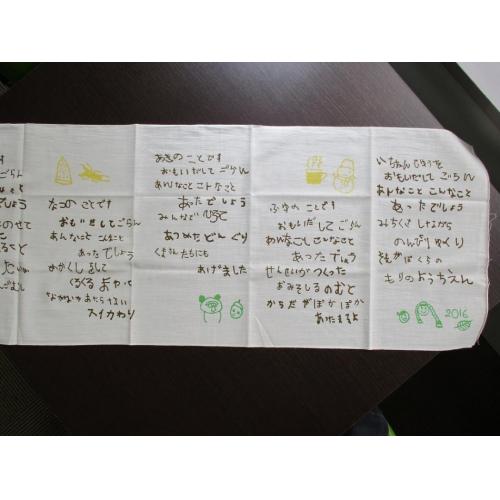 ごらん
こと
でしょう
のせて
なつの ことです
おもいだしてごらん
あんなこと こんなこと
あったでしょう
めかくし をして
ぐるぐる まわって
なかなか あたらない
スイカわり
あきの ことです
おもいだして ごらん
あんなこと こんなこと
あったでしょう
みんなで ひろって
あつめた どんぐり
くまさんたちにも
あげました
ふゆの ことです
おもいだして ごらん
あんなこと こんなこと
あったでしょう
せんせいが つくった
おみそしる のむと
からだが ぽか ぽか
あたたまるよ
いちねんじゅうを
おもいだして ごらん
あんなこと こんなこと
あったでしょう
みちくさ しながら
のんびり ゆっくり
それが ぼくらの
もりの ようちえん
2016